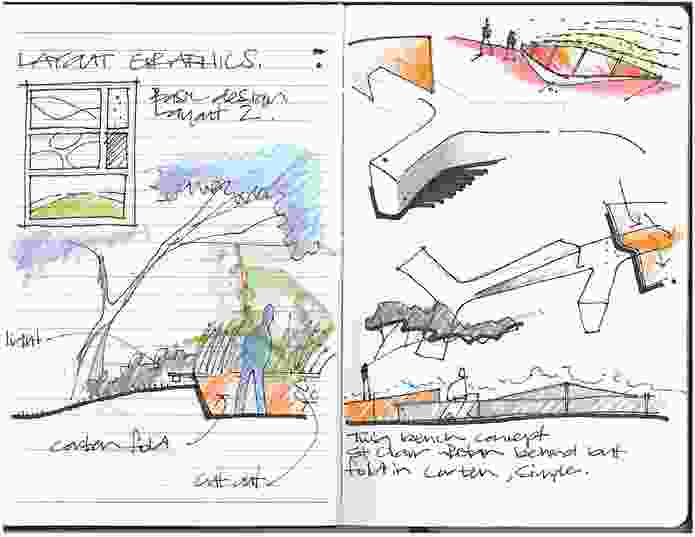 LAYOUT GRAPHICS.
Basic design
Layout 2.
light
corten fold
cut out
Twig bench concept
behind but
fold in Corten, Simple.